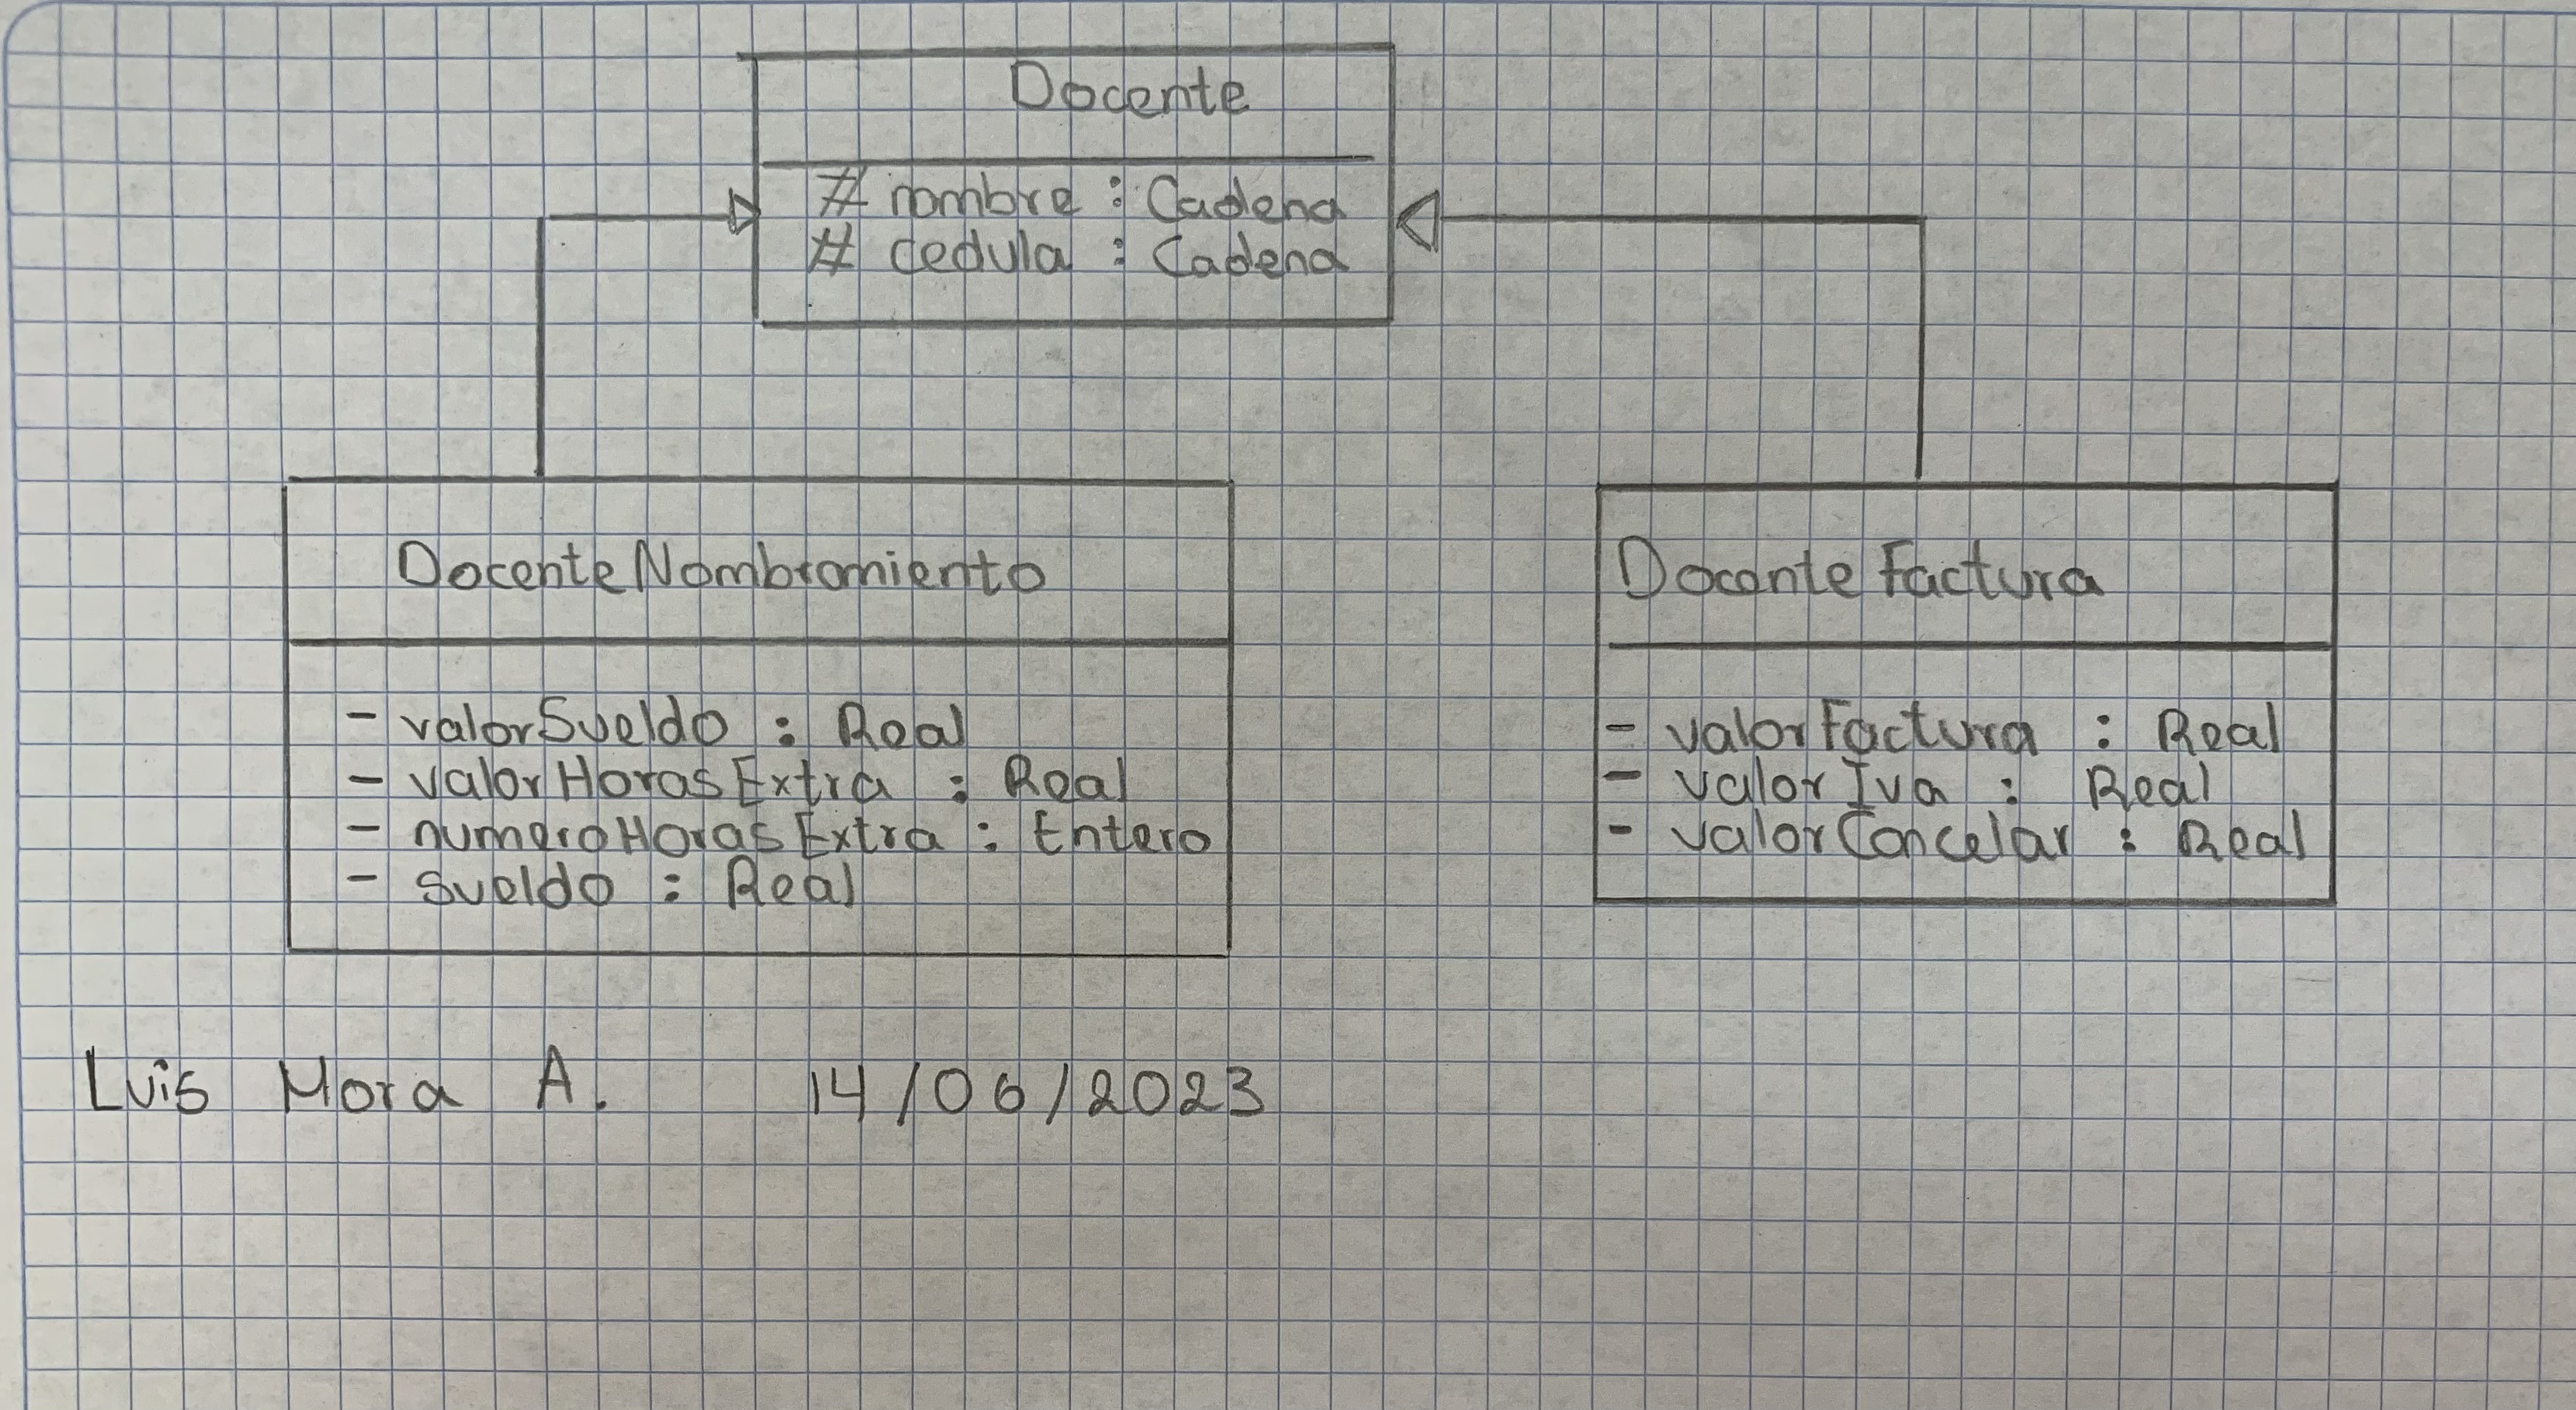 Docente
# nombre : Cadena
# cedula : Cadena
DocenteNombramiento
- valorSueldo : Real
- valorHorasExtra : Real
- numeroHorasExtra : Entero
- sueldo : Real
DocenteFactura
- valorFactura : Real
- valorIva : Real
- valorCancelar : Real
Luis Mora A. 14/06/2023